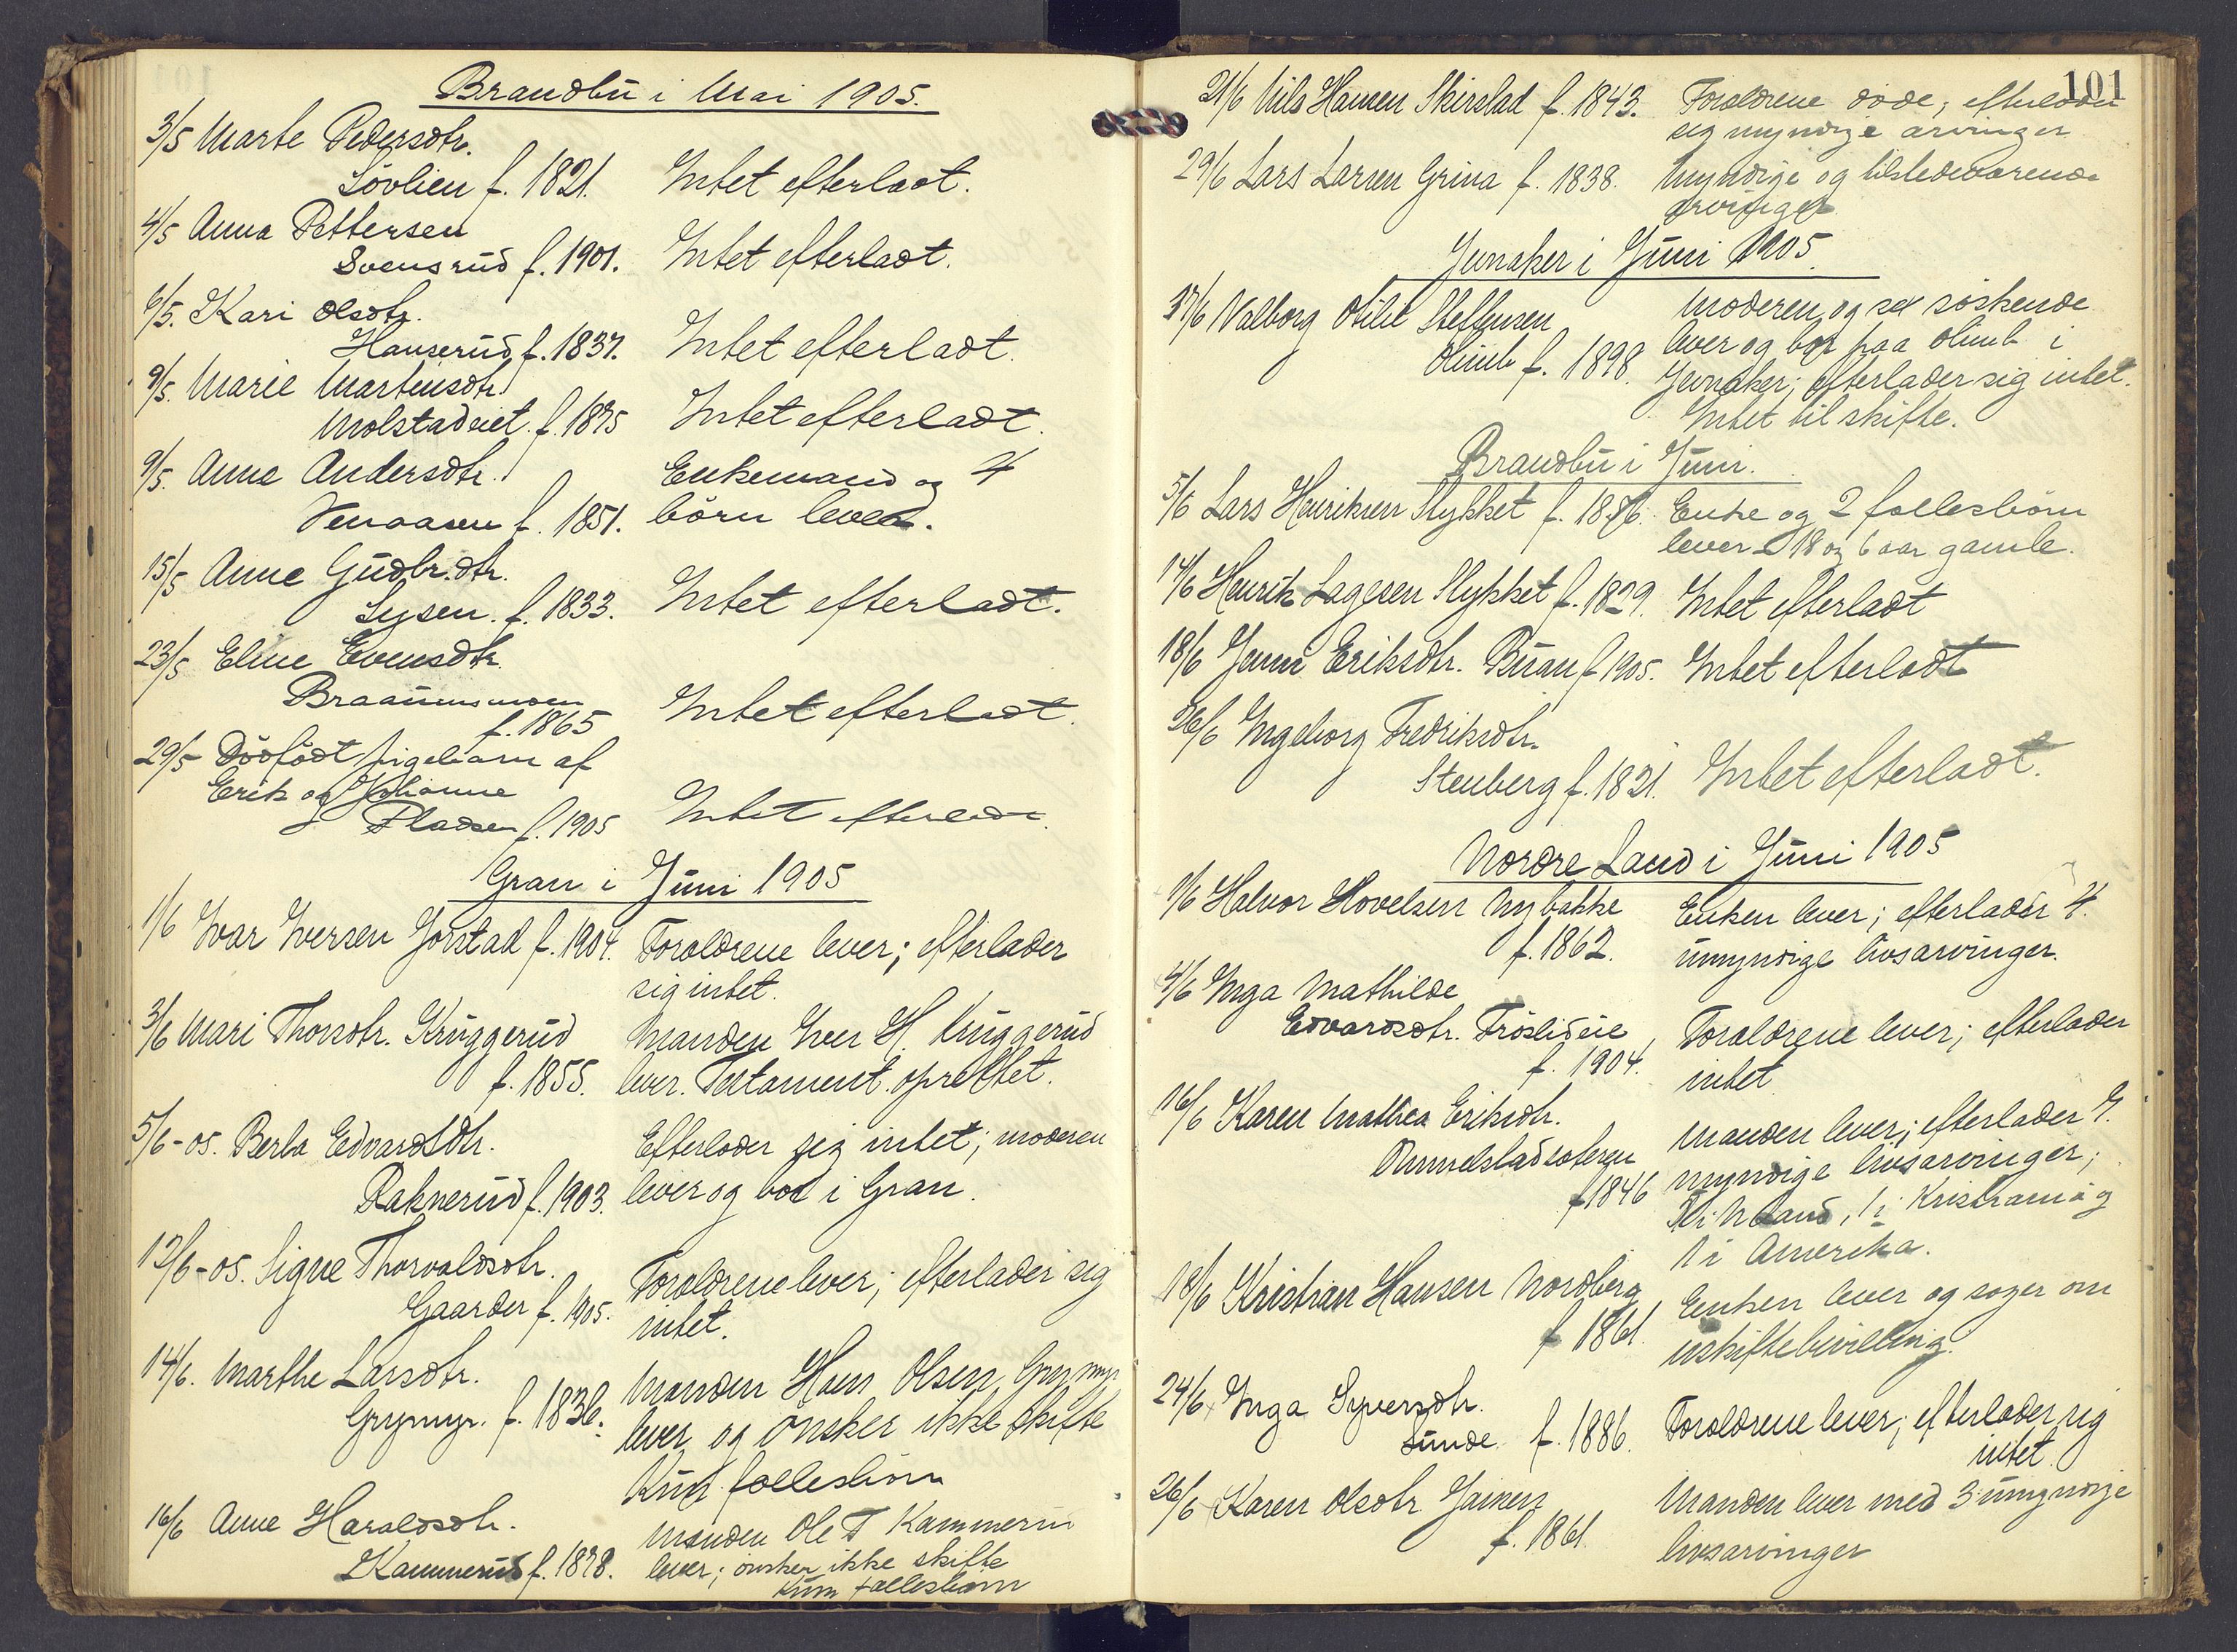 Brandbu i Mai 1905.
3/5 Marte Pedersdtr.
Sövlien f. 1821. Intet efterladt.
4/5 Anna Pettersen
Svensrud f. 1901. Intet efterladt.
6/5. Kari Olsdtr.
Hanserud f. 1837. Intet efterladt.
9/5. Marie Martinsdtr.
Molstadeiet. f. 1875 Intet efterladt.
9/5. Anne Andersdtr. Enkemand og 4
f. 1851. börn lever.
15/5 Anne Gudbr.dtr.
Lysen. f. 1833. Intet efterladt.
23/5 Eline Evensdtr.
f. 1865 Intet efterladt.
29/5 Dödfödt pigebarn af
Erik og Johanne
Pladsen f. 1905 Intet efterladt.
Gran i Juni 1905
1/6 Ivar Iversen Jorstad f. 1904. Forældrene lever; efterlader
sig intet.
3/6 Mari Thorsdtr. Kruggerud Manden Iver H. Kruggerud
f. 1855. lever. Testament oprettet.
5/6-05. Berta Edvardsdtr. Efterlader sig intet; moderen
Raknerud f. 1903. lever og bor i Gran.
12/6-05. Signe Thorvaldsdtr. Forældrene lever; efterlader sig
Gaarder f. 1905. intet.
14/6. Marthe Larsdtr. Manden Hans Olsen Grymyr
Grymyr. f. 1836. lever og önsker ikke skifte
Kun fællesbörn
16/6 Anne Haraldsdtr. Manden Ole T Kammerud
Kammerud f. 1878. lever; önsker ikke skifte
Kun fællesbörn
101
21/6 Nils Hansen Skirstad f. 1843. Forældrene döde; efterlader
sig myndige arvinger
29/6 Lars Larsen Grina f. 1838. Myndige og tilstedeværende
arvinger
Jevnaker i Juni 1905.
Valborg Otilie Steffensen Moderen og sex söskende
Olimb f. 1898. lever og bor paa Olimb i
Jevnaker; efterlader sig intet.
Intet til skifte.
Brandbu i Juni.
5/6 Lars Henriksen Stykket f. Enke og 2 fællesbörn
lever 18 og 6 aar gamle.
14/6 Henrik Lagesen Stykket f. 1829. Intet efterladt
18/6 Jenni Eriksdtr. Buan f 1905. Intet efterladt
26/6 Ingeborg Fredriksdtr.
Stenberg f. 1821. Intet efterladt.
Nordre Land i Juni 1905
1/6 Halvor Hovelsen Nybakke Enken lever; efterlader 4.
f. 1862. umyndige livsarvinger.
4/6 Inga Mathilde
Edvardsdtr. Fröslideie Forældrene lever; efterlader
f. 1904. intet
16/6 Karen Mathea Eriksdtr. Manden lever; efterlader
myndige livsarvinger;
f 1846 i N Land, 1 i Kristiania og
1 i Amerika.
18/6 Kristian Hansen Nordberg Enken lever og söger om
f 1861. uskiftebevilling.
24/6 Inga Syversdtr.
Sunde f. 1886. Forældrene lever; efterlader sig
intet.
26/6 Karen Olsdtr. Manden lever med 3 umyndige
f. 1861. livsarvinger